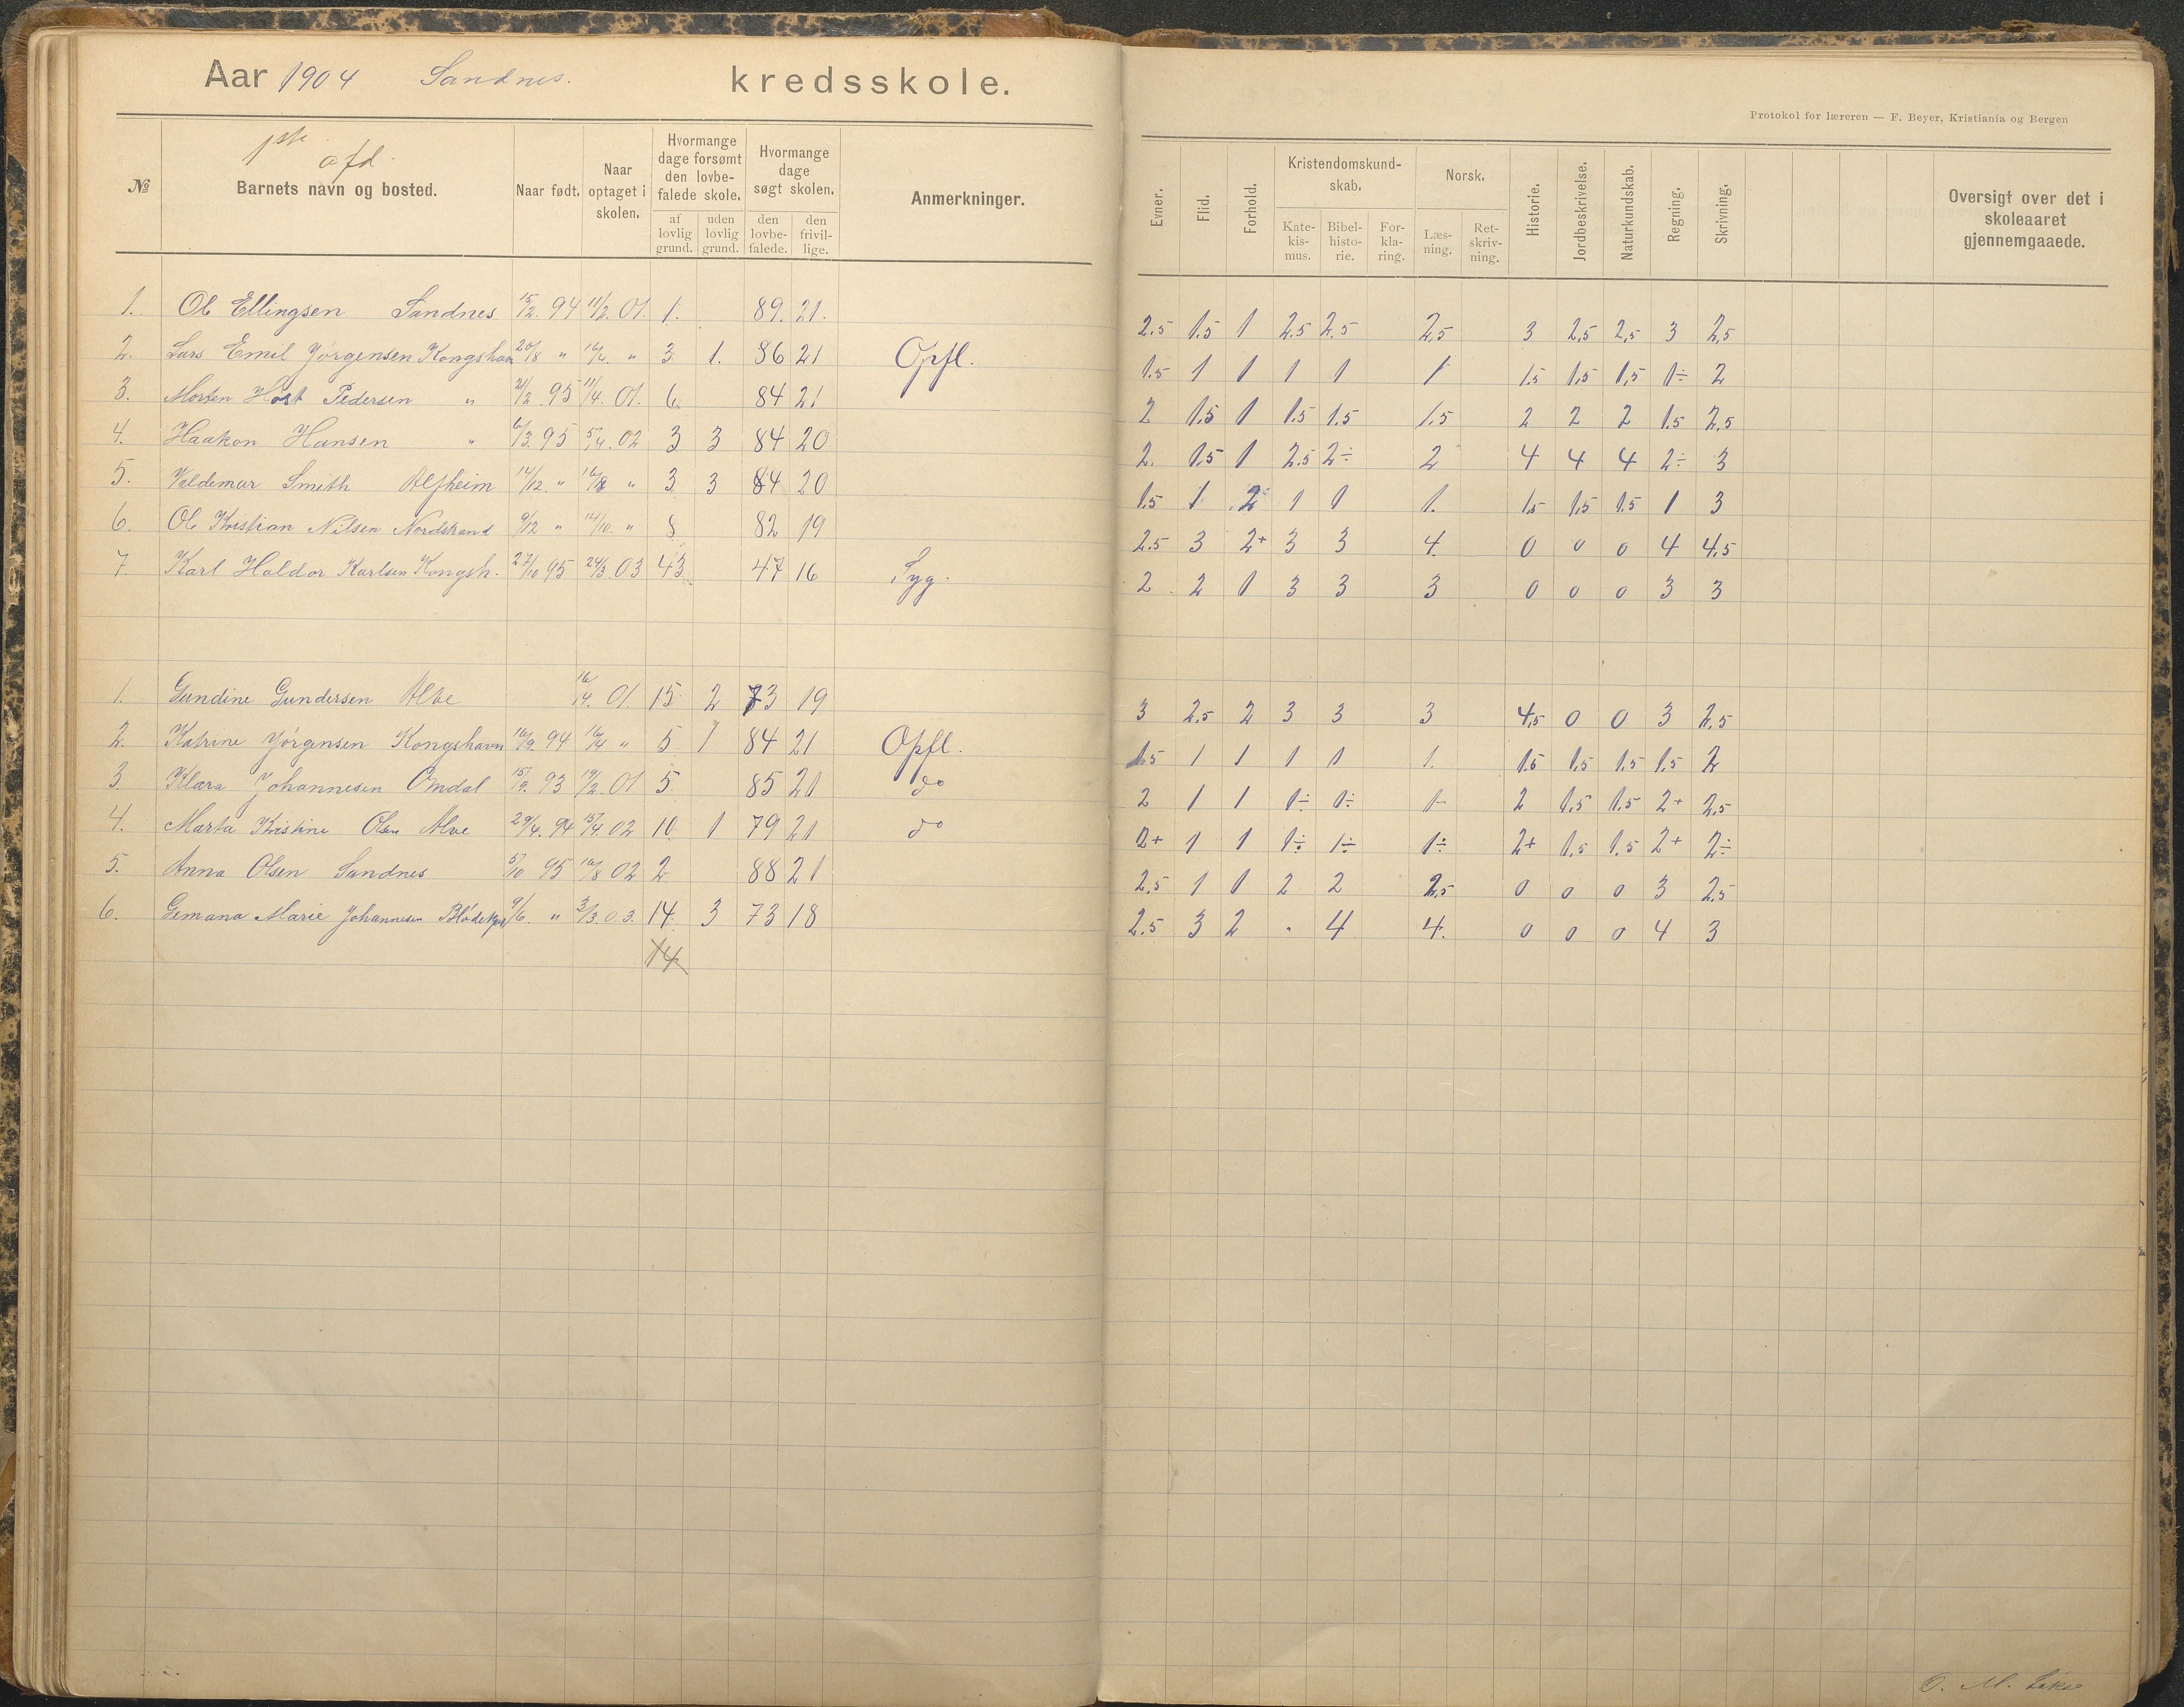 Aar 1904 Sandnes. kredsskole.
Protokol for læreren — F. Beyer, Kristiania og Bergen
1ste afd.
№ Barnets navn og bosted. Naar født. Naar optaget i skolen. Hvormange dage forsømt den lovbefalede skole. af lovlig grund. uden lovlig grund. Hvormange dage søgt skolen. den lovbefalede. den frivillige. Anmerkninger.
Evner. Flid. Forhold. Kristendomskundskab. Katekismus. Bibelhistorie. Forklaring. Norsk. Læsning. Retskrivning. Historie. Jordbeskrivelse. Naturkundskab. Regning. Skrivning. Oversigt over det i skoleaaret gjennemgaaede.
1. Ole Ellingsen Sandnes 15/2. 94 11/2. 01. 1. 89. 21. 2.5 1.5 1 2.5 2.5 2,5 3 2,5 2,5 3 2,5
2. Lars Emil Jørgensen Kongshavn 20/8 " 16/4. " 3 1. 86 21 Opfl. 1.5 1 1 1 1 1 1.5 1,5 1,5 1÷ 2
3. Morten Høst Pedersen " 21/2. 95 11/4. 01. 6. 84 21 2 1.5 1 1.5 1.5 1.5 2 2 2 1.5 2,5
4. Haakon Hansen " 6/3. 95 5/4. 02 3 3 84 20 2. 1.5 1 2.5 2÷ 2 4 4 4 2÷ 3
5. Valdemar Smith Alfheim 14/12 " 16/8 " 3 3 84 20 1.5 1 2 1 1 1. 1.5 1,5 1.5 1 3
6. Ole Kristian Nilsen Nordstrand 9/12 " 14/10. " 8 82 19 2.5 3 2+ 3 3 4. 0 0 0 4 4,5
7. Karl Haldor Karlsen Kongsh. 27/10 95 24/3. 03 43 47 16 Syg. 2 2 1 3 3 3 0 0 0 3 3
1. Gundine Gundersen Alve 16/4. 01. 15 2 73 19 3 2.5 2 3 3 3 4,5 0 0 3 2,5
2. Katrine Jørgensen Kongshavn 16/9. 94 16/4 " 5 1 84 21 Opfl. 1.5 1 1 1 1 1. 1.5 1,5 1.5 1.5 2
3. Klara Johannesen Omdal 15/9. 93 19/2. 01 5 85 21 do 2 1 1 1÷ 1÷ 1- 2 1.5 1.5 2+ 2,5
4. Marta Kristine Olsen Alve 29/4. 94 15/4. 02 10 1 79 21 do 2+ 1 1 1÷ 1÷ 1÷ 2+ 1,5 1.5 2+ 2÷
5. Anna Olsen Sandnes 5/10 95 16/8 02 2 88 21 2,5 1 1 2 2 2,5 0 0 0 3 2,5
6. Gemana Marie Johannesen 9/6. " 3/3. 03. 14. 3 73 18 2.5 3 2 " 4 4. 0 0 0 4 3
14